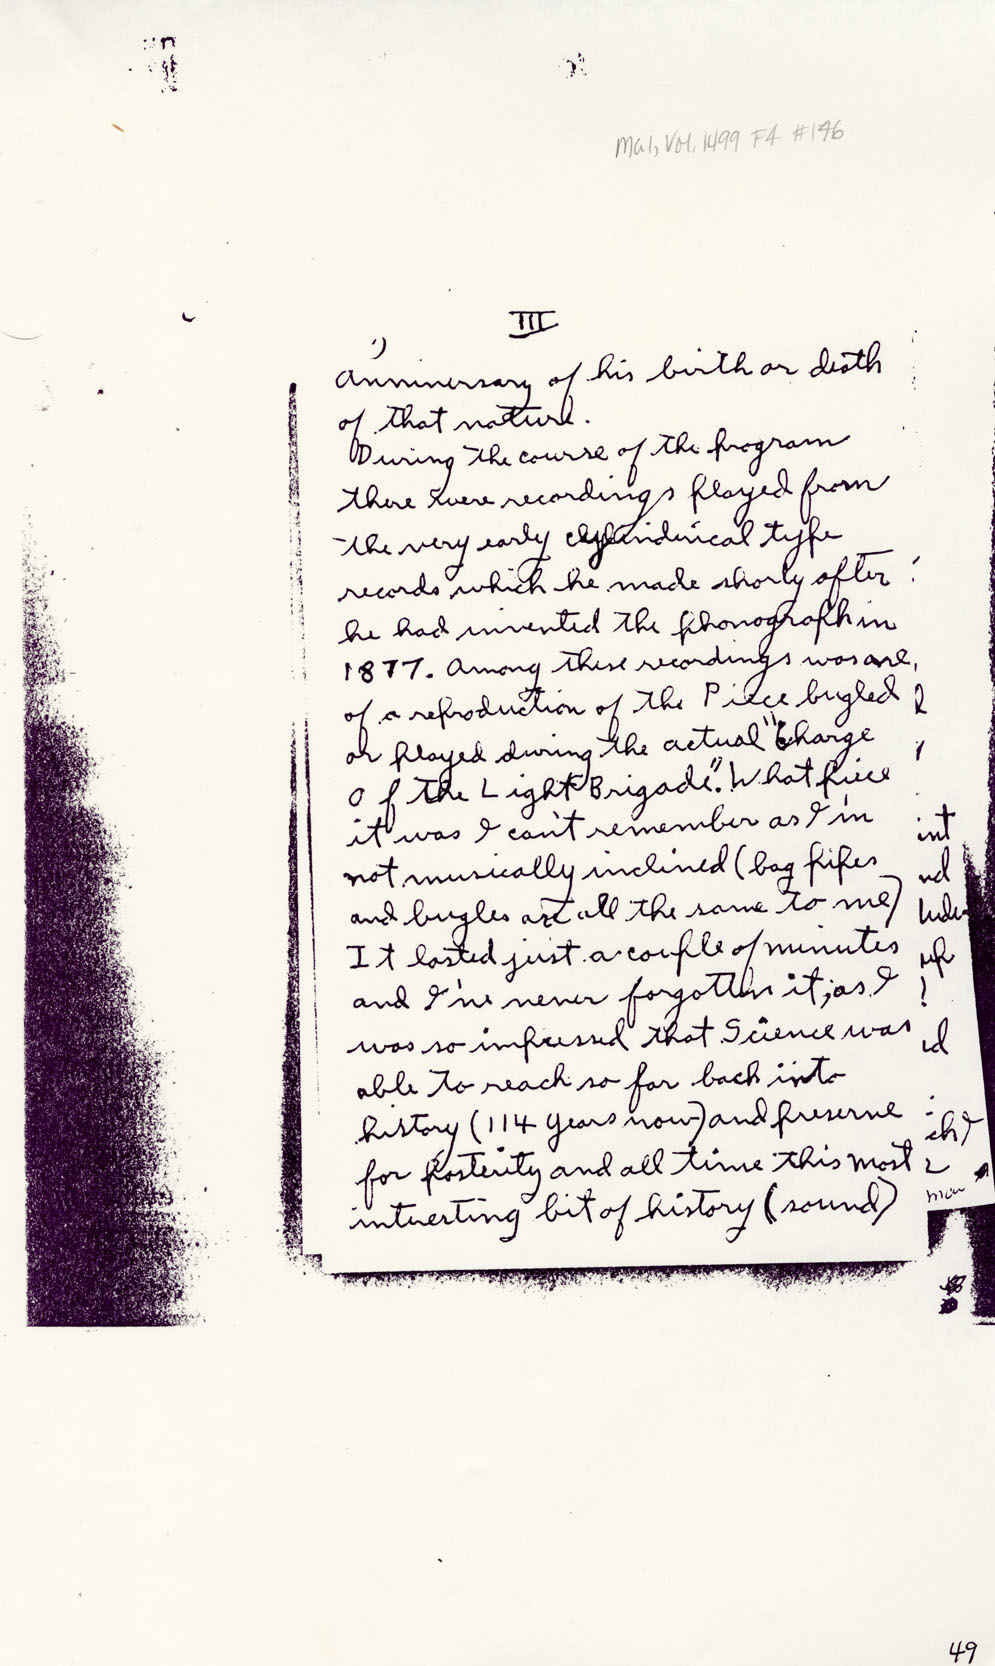 MG1, Vol. 1499 F4 #146
III
Anniversary of his birth or death
of that nature.
During the course of the program
there were recordings played from
the very early cylindirical type
records which he made shorly after
he had invented the phonograph in
1877. Among these recordings was one,
of a reproduction of the Piece bugled
or played during the actual "Charge
Of the Light Brigade". What piece
it was I can't remember as I'm
not musically inclined (bag pipes
and bugles are all the same to me)
It lasted just a couple of minutes
and I've never forgotten it; as I
was so impressed that Science was
able to reach so far back into
history (114 years now) and preserve
for posterity and all time this most
interesting bit of history (sound)
int
nd
id
49